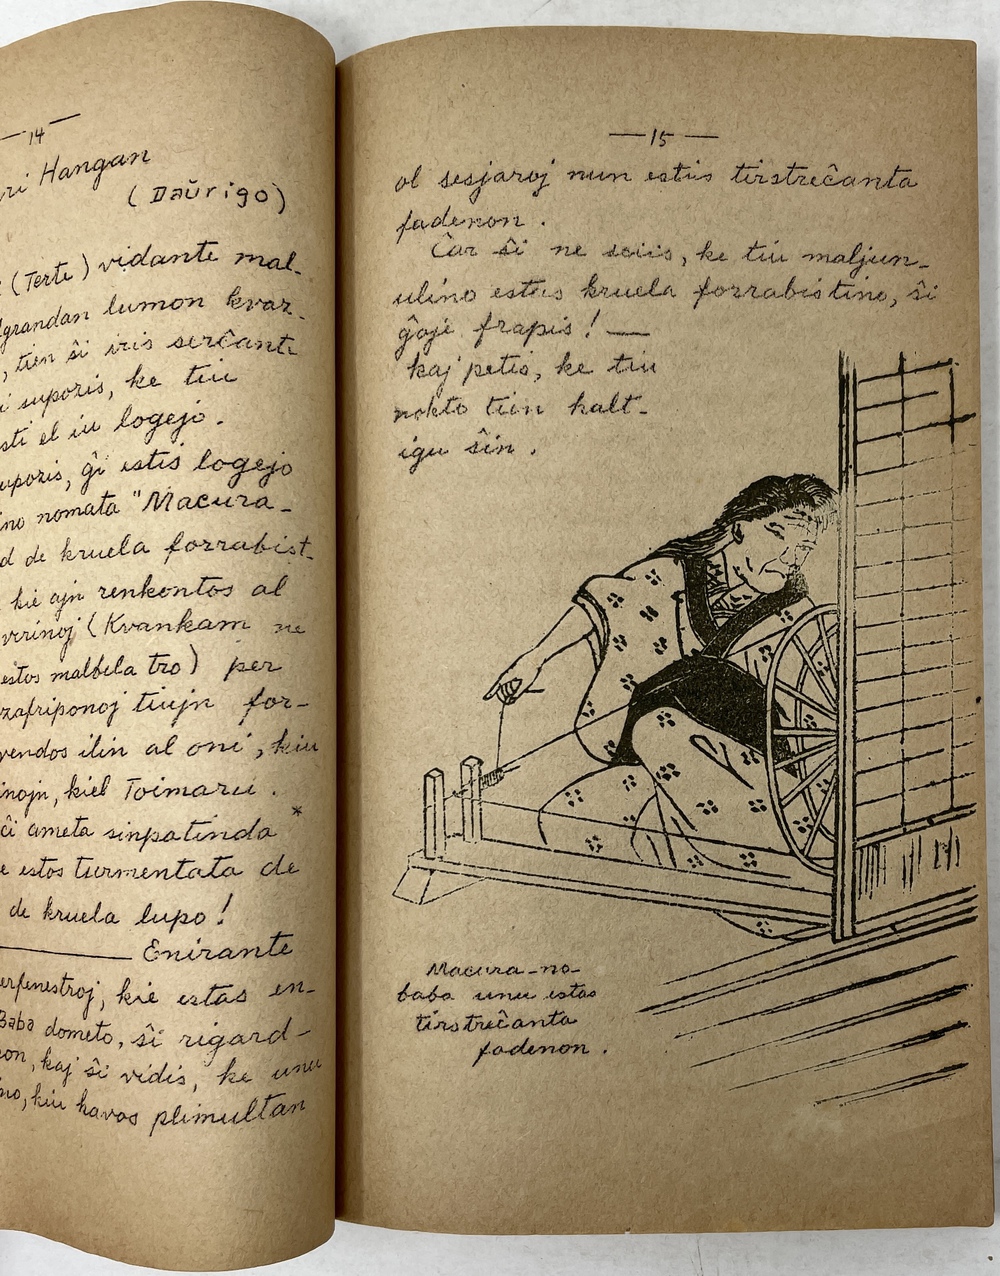 — 14 —
ri Hangan
(Daŭrigo)
(Terte) vidante mal-
grandan lumon kvaz-
, tien ŝi iris serĉante
i supozis, ke tiu
sti el iu logejo.
upozis, ĝi estis logejo
ino nomata "Macura-
d de kruela forrabist-
kie ajn renkontos al
virinoj (Kvankam ne
estos malbela tro) per
zafriponoj tiujn for-
vendos ilin al oni, kiu
inojn, kiel Toimaru.
ĉi ameta sinpatinda *
e estos turmentata de
de kruela lupo!
— Enirante
erfenestroj, kie estas en-
Baba dometo, ŝi rigard-
on, kaj ŝi vidis, ke unu
ino, kiu havas plimultan
— 15 —
ol sesjaroj nun estis tirstreĉanta
fadenon.
Ĉar ŝi ne sciis, ke tiu maljun-
ulino estas kruela forrabistino, ŝi
ĝoje frapis! —
kaj petis, ke tiu
nokto tien halt-
igu ŝin.
Macura-no-
baba unu estas
tirstreĉanta
fadenon.